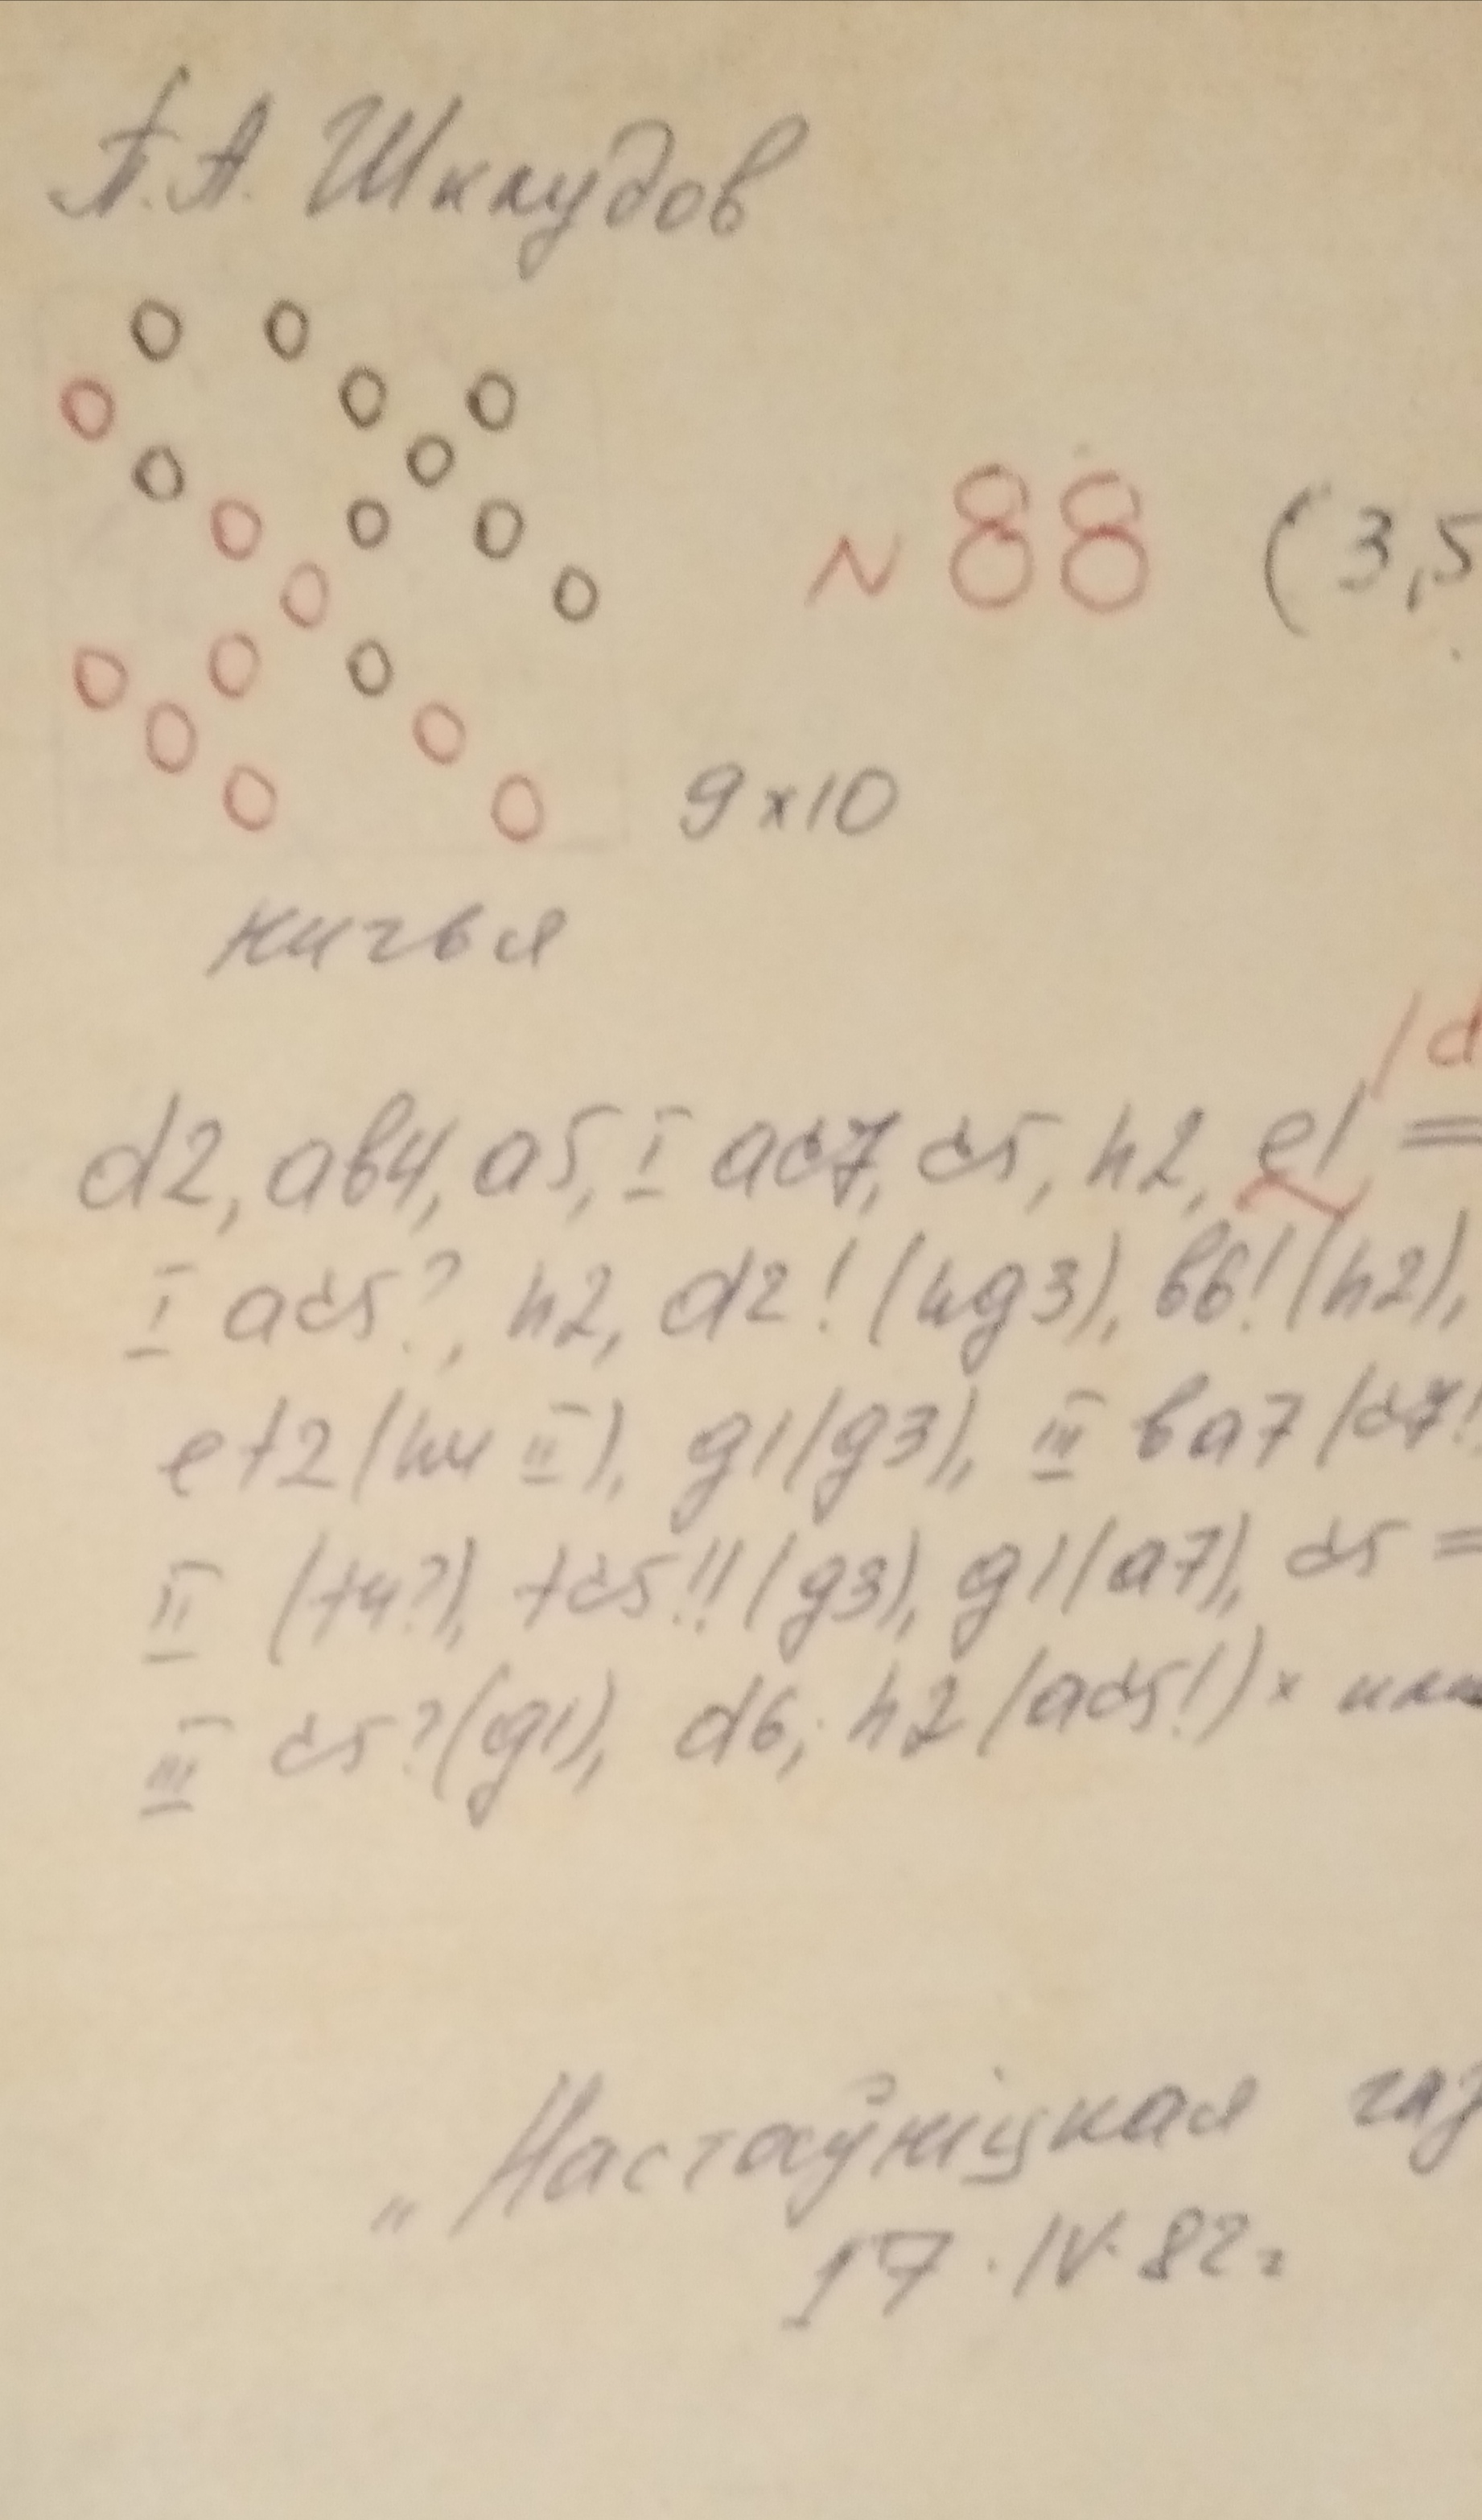 А.А. Шклудов
N 88 (3,5
9x10
ничья
/d
d2, aв4, a5, I ac7, c5, h2, e1 =
I ac5?, h2, d2! (hg3), в6! (h2),
ef2 (h4 II), g1 (g3), III вa7 (c7!
II (f4?), fc5!! (g3), g1 (a7), c5 =
III c5? (g1), d6, h2 (ac5!) x или
„Настаўніцкая газ
17.IV.82г